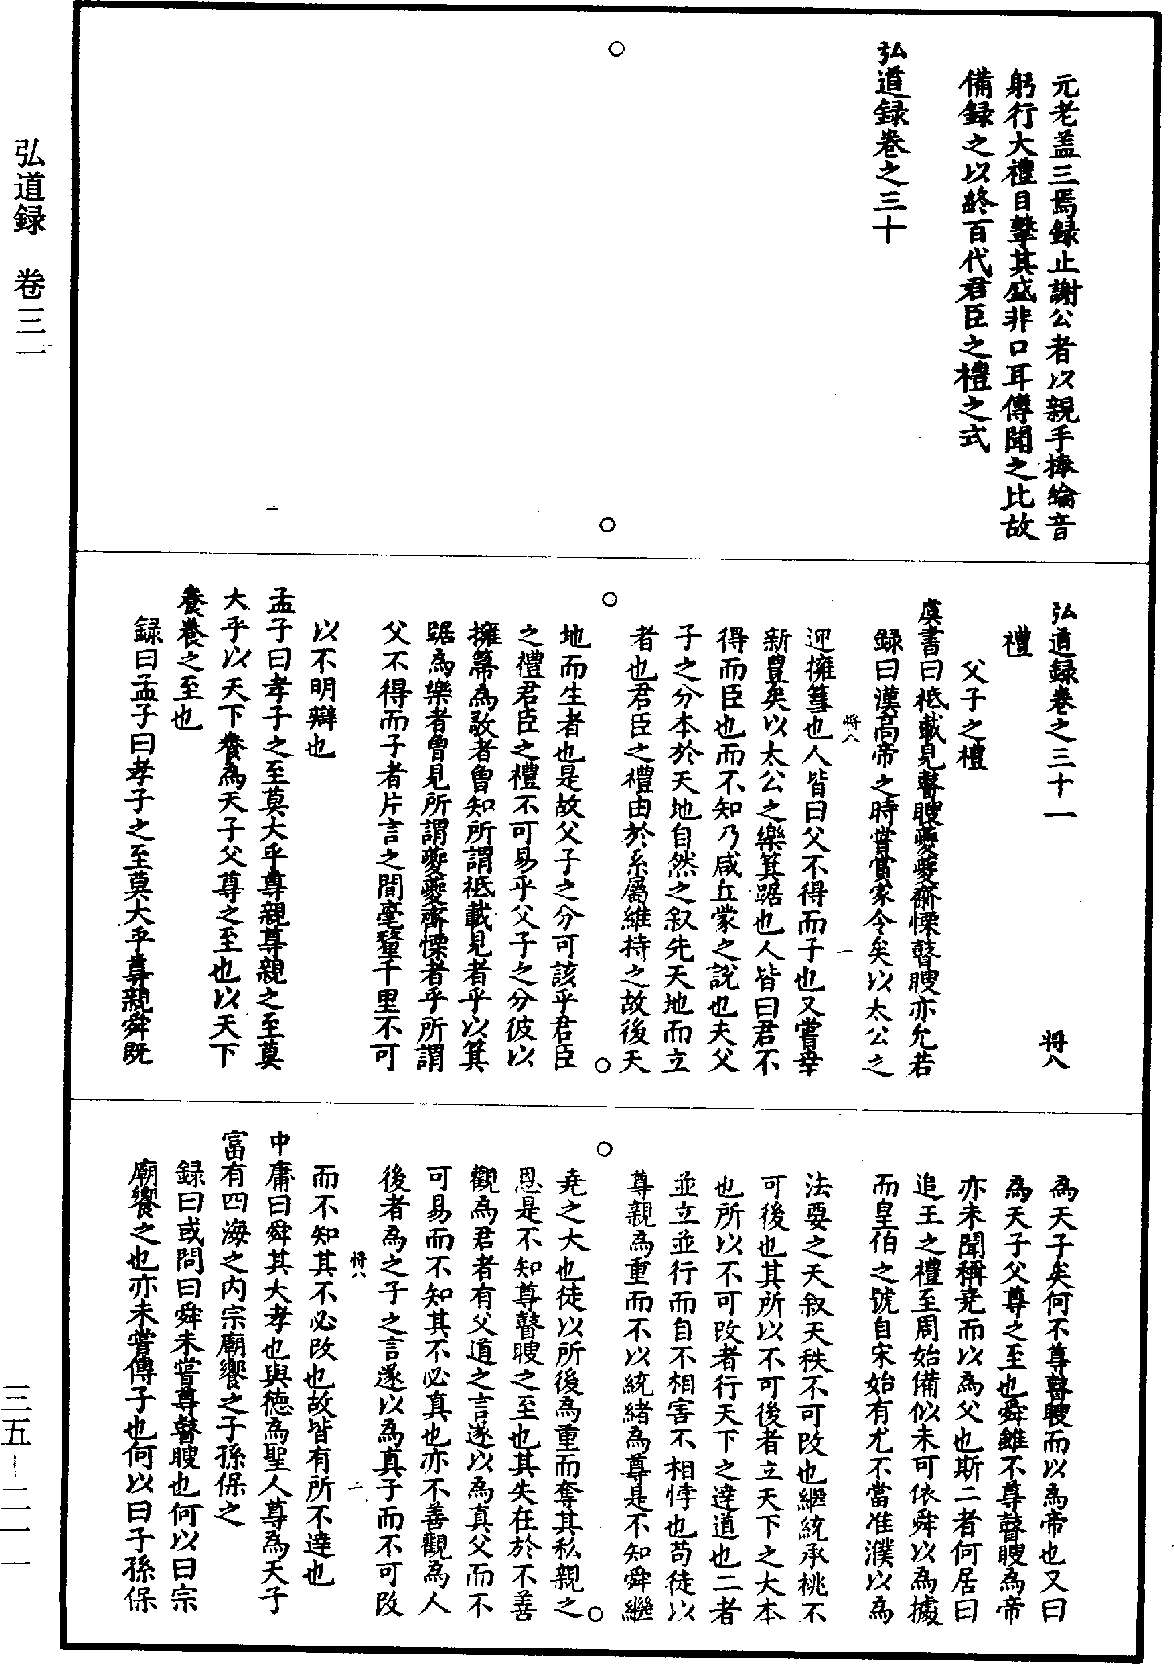 元老盖三焉録止謝公者以親手捧綸音
躬行大禮目擊其盛非口耳傳聞之比故
備録之以終百代君臣之禮之式
弘道録卷之三十
弘道録卷之三十一
將八
禮
父子之禮
虞書曰祗載見瞽瞍夔夔齊慄瞽瞍亦允若
録曰漢高帝之時嘗賞家令矣以太公之
迎擁篲也人皆曰父不得而子也又嘗幸
新豐矣以太公之樂箕踞也人皆曰君不
得而臣也而不知乃咸丘蒙之說也夫父
子之分本於天地自然之叙先天地而立
者也君臣之禮由於系屬維持之故後天
地而生者也是故父子之分可該乎君臣
之禮君臣之禮不可易乎父子之分彼以
擁篲為敬者曾知所謂祗載見者乎以箕
踞為樂者曾見所謂夔夔齊慄者乎所謂
父不得而子者片言之間毫釐千里不可
以不明辯也
孟子曰孝子之至莫大乎尊親尊親之至莫
大乎以天下養為天子父尊之至也以天下
養養之至也
録曰孟子曰孝子之至莫大乎尊親舜既
為天子矣何不尊瞽瞍而以為帝也又曰
為天子父尊之至也舜雖不尊瞽瞍為帝
亦未聞稱堯而以為父也斯二者何居曰
追王之禮至周始備似未可依舜以為據
而皇伯之號自宋始有尤不當准濮以為
法要之天叙天秩不可改也繼統承祧不
可後也其所以不可後者立天下之大本
也所以不可改者行天下之達道也二者
並立並行而自不相害不相悖也苟徒以
尊親為重而不以統緒為尊是不知舜繼
堯之大也徒以所後為重而奪其私親之
恩是不知尊瞽瞍之至也其失在於不善
觀為君者有父道之言遂以為真父而不
可易而不知其不必真也亦不善觀為人
後者為之子之言遂以為真子而不可改
而不知其不必改也故皆有所不達也
中庸曰舜其大孝也與德為聖人尊為天子
富有四海之内宗廟饗之子孫保之
録曰或問曰舜未嘗尊瞽瞍也何以曰宗
廟饗之也亦未嘗傳子也何以曰子孫保
將八
一
將八
二
弘道録　卷三一
三五－二一一